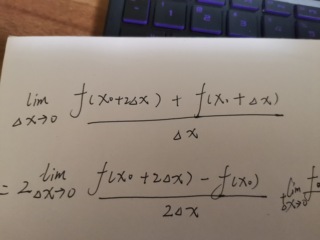 lim_{Δx→0} \frac{f(x₀+2Δx) + f(x₀+Δx)}{Δx}
= 2 lim_{Δx→0} \frac{f(x₀+2Δx) - f(x₀)}{2Δx} lim_{Δx→0}